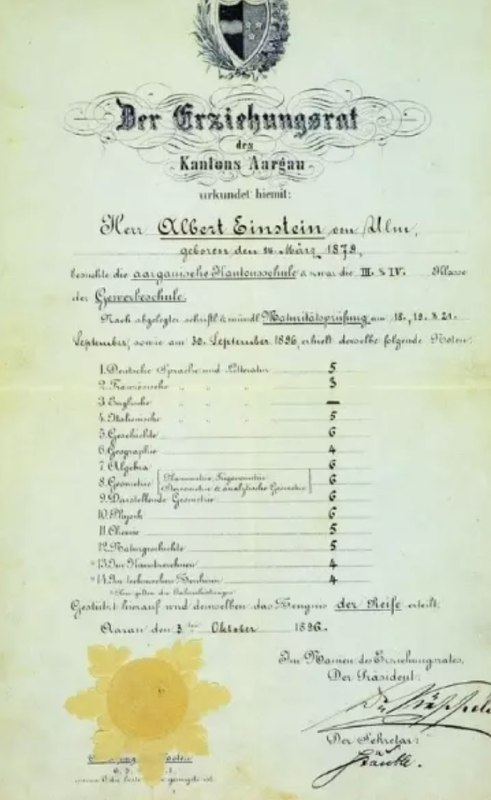 Der Erziehungsrat
des
Kantons Aargau
urkundet hiemit:
Herr Albert Einstein von Ulm,
geboren den 14. März 1879,
besuchte die aargauische Kantonsschule & zwar die III. & IV. Klasse
der Gewerbeschule.
Nach abgelegter schriftl. & mündl. Maturitätsprüfung am 18., 19. & 21.
September, sowie am 30. September 1896, erhielt derselbe folgende Noten:
1. Deutsche Sprache und Litteratur 5
2. Französische " " " 3
3. Englische " " " —
4. Italienische " " " 5
5. Geschichte 6
6. Geographie 4
7. Algebra 6
8. Geometrie [Planimetrie, Trigonometrie Stereometrie & analytische Geometrie] 6
9. Darstellende Geometrie 6
10. Physik 6
11. Chemie 5
12. Naturgeschichte 5
*13. Im Kunstzeichnen 4
*14. Im technischen Zeichnen 4
*Hier gelten die Jahresleistungen.
Gestützt hierauf wird demselben das Zeugnis der Reife erteilt.
Aarau den 3ten Oktober 1896.
Im Namen des Erziehungsrates,
Der Präsident:
Der Sekretär: